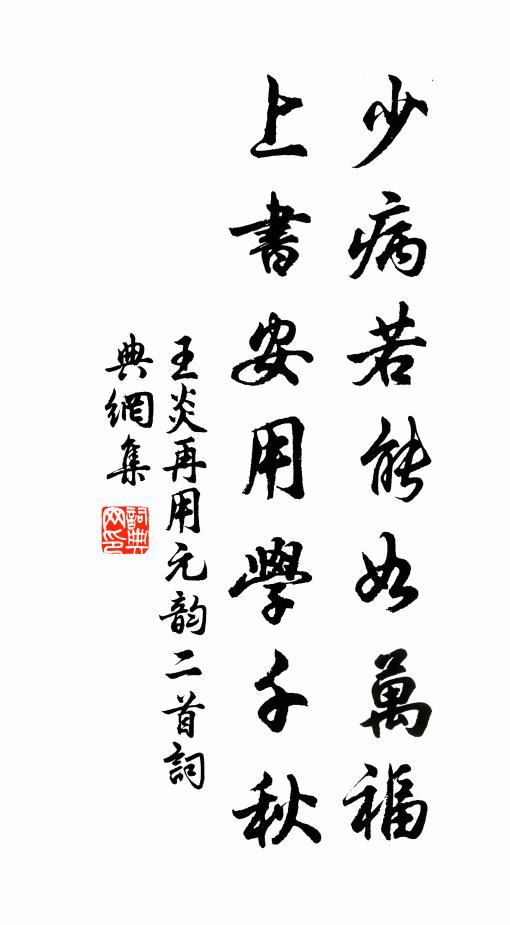 少病若能如萬福
上書安用學千秋
王炎再用元韵二首詞
典網集
詞典网印